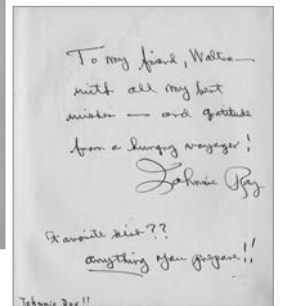 To my friend, Walter —
with all my best
wishes — and gratitude
from a hungry voyager!
Johnnie Ray
Favorite dish??
anything you prepare!!
Johnnie Ray!!